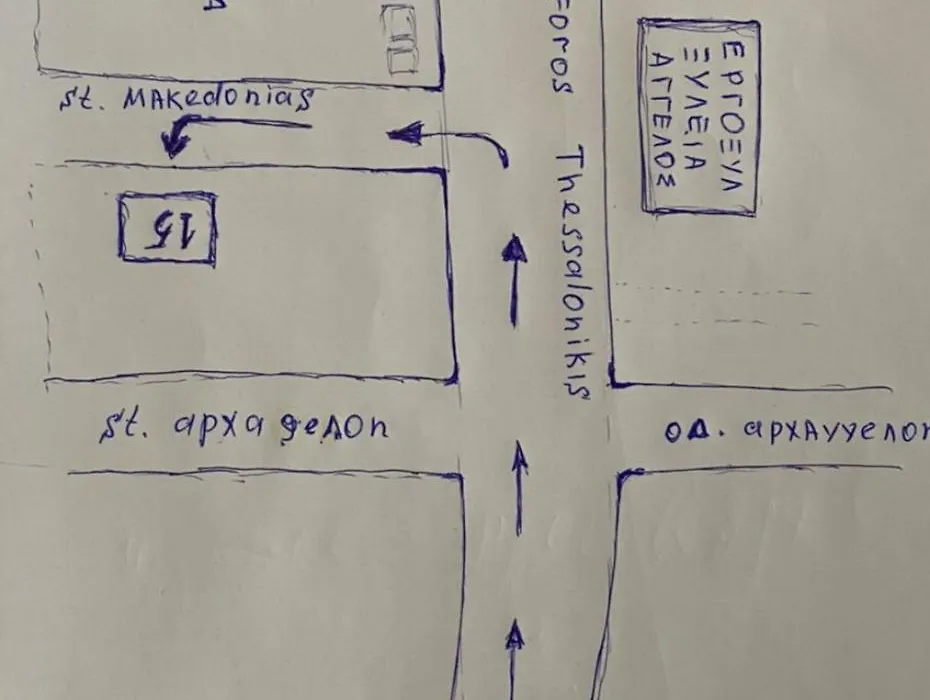 st. MAKedoniAs
foros Thessalonikis
ΕΡΓΟΞΥΛ
ΞΥΛΕΙΑ
ΑΓΓΕΛΟΣ
15
st. αρχαgελοп
ΟΔ. αρχαγγελοп